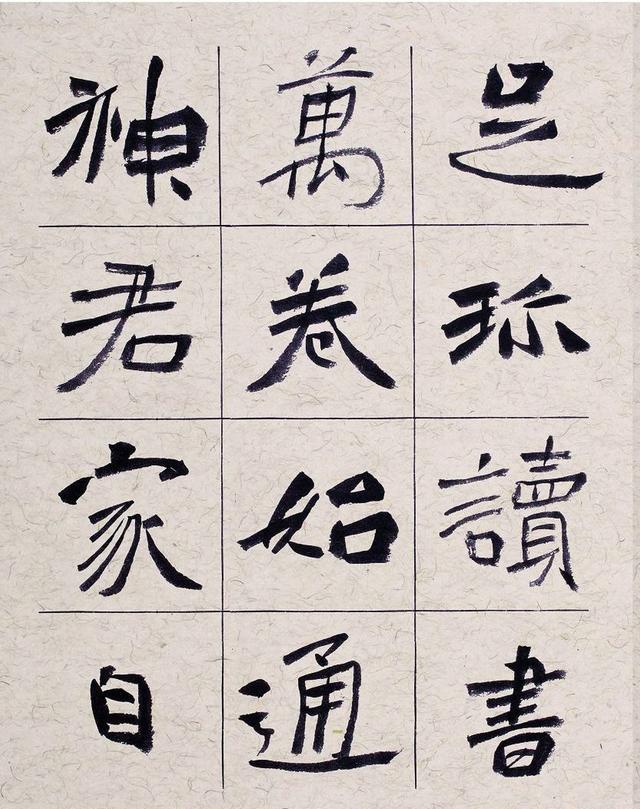 足珎讀書
萬卷始通
神君家自